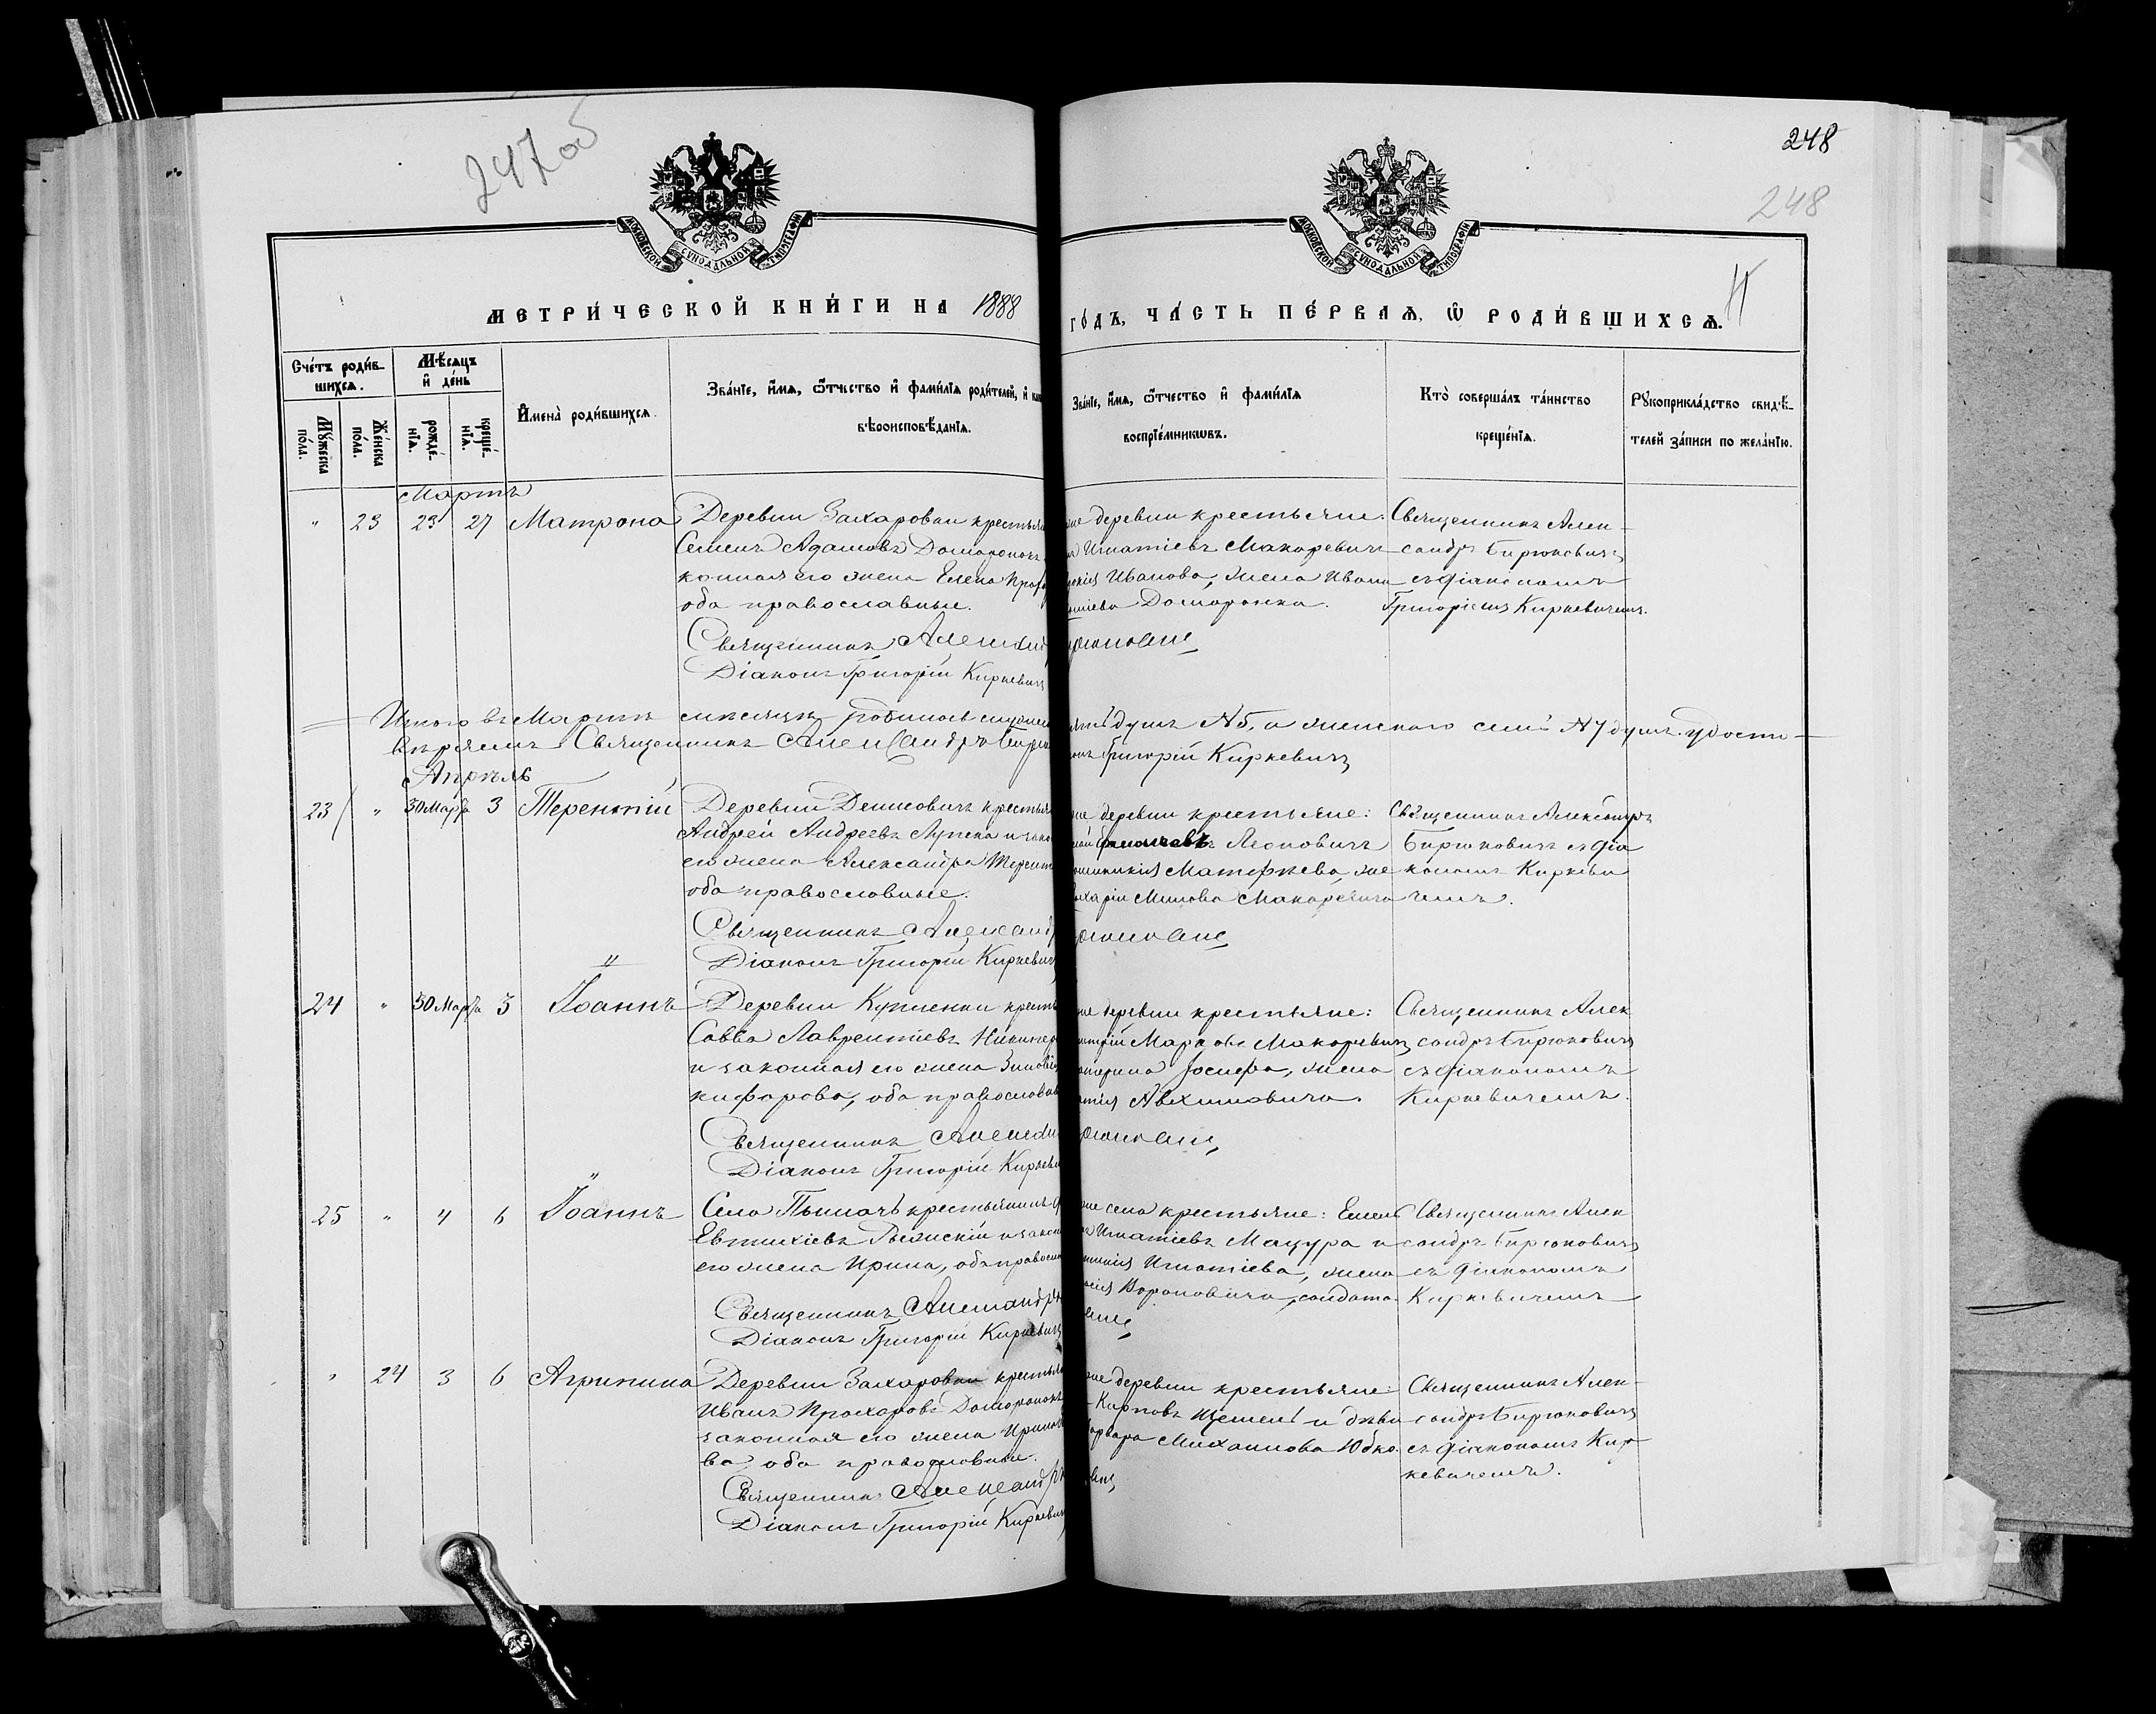 247об
248
248
МОСКОВСКОЙ СѴНОДАЛЬНОЙ ТИПОГРАФІИ
МОСКОВСКОЙ СѴНОДАЛЬНОЙ ТИПОГРАФІИ
МЕТРИ́ЧЕСКОЙ КНИ́ГИ НА 1888
ГО́ДЪ, ЧА́СТЬ ПЕ́РВАѦ, Ѽ РОДИ́ВШИХСѦ.
Сче́тъ роди́в-
шихсѧ.
Мѣ́сѧцъ
и҆ де́нь
Мꙋ́жеска
по́ла.
Же́нска
по́ла.
рожде́-
нїѧ.
креще́-
нїѧ.
И҆мена̀ роди́вшихсѧ.
Зва́нїе, и҆́мѧ, ѻ҆́тчество и҆ фами́лїѧ роди́телей, и҆
вѣроисповѣ́данїѧ.
Зва́нїе, и҆́мѧ, ѻ҆́тчество и҆ фами́лїѧ
воспрїе́мникѡвъ.
Кто̀ соверша́лъ та́инство
креще́нїѧ.
Рꙋкоприкла́дство свидѣ́-
телей за́писи по жела́нїю.
Мартъ
" 23 23 27 Матрона
Деревни Захаровки крестья
Семенъ Адамовъ Доморонокъ
конная его жена Елена Проф
оба православные.
Священникъ Александ
Діаконъ Григорій Киркевичъ
же деревни крестьяне:
Игнатіевъ Макаревичъ
Иванова, жена Ивана
Доморонка.
Священникъ Алек-
сандръ Бирюковичъ
съ діакономъ
Григоріемъ Киркевичемъ.
Итого въ Мартѣ мѣсяцѣ родилось мужеска
душъ №5, а женскаго семь №7 душъ. удосто-
вѣряемъ: Священникъ Александръ Бирю
Григорій Киркевичъ
Апрѣль
23 " 30 Марта 3 Терентій
Деревни Денисовичъ крестья
Андрей Андреевъ Лупека и зако
его жена Александра Терент
оба православные.
Священникъ Александ
Діаконъ Григорій Киркевичъ
же деревни крестьяне:
Леоновичъ
Матфѣева, же
Минова Макаревича
Священникъ Александръ
Бирюковичъ съ діа
кономъ Киркеви
чемъ.
24 " 30 Марта 3 Іоаннъ
Деревни Купленки кресть
Савва Лаврентіевъ
и законная его жена Зиновія
кифорова, оба православн
Священникъ Александ
Діаконъ Григорій Киркеви
же деревни крестьяне:
Марковъ Макаревичъ
Іосифа, жена
Авхимовича.
Священникъ Алек
сандръ Бирюковичъ
съ діакономъ
Киркевичемъ.
25 " 4 6 Іоаннъ
Села крестьянинъ
Евтихіевъ и закон
его жена Ирина, оба правосла
Священникъ Александръ
Діаконъ Григорій Киркевичъ
же села крестьяне:
Игнатіевъ Мацура и
Игнатіева, жена
Вороновича, солдата.
Священникъ Алек
сандръ Бирюковичъ
съ діакономъ
Киркевичемъ
" 24 3 6 Агрипина
Деревни Захаровки крестья
Иванъ Прохоровъ Доморонокъ
законная его жена Ирина
ва оба православные.
Священникъ Александръ
Діаконъ Григорій Киркевичъ
же деревни крестьяне:
Карповъ и дѣви
Михаилова
Священникъ Алек-
сандръ Бирюковичъ
съ діакономъ Кир
кевичемъ.